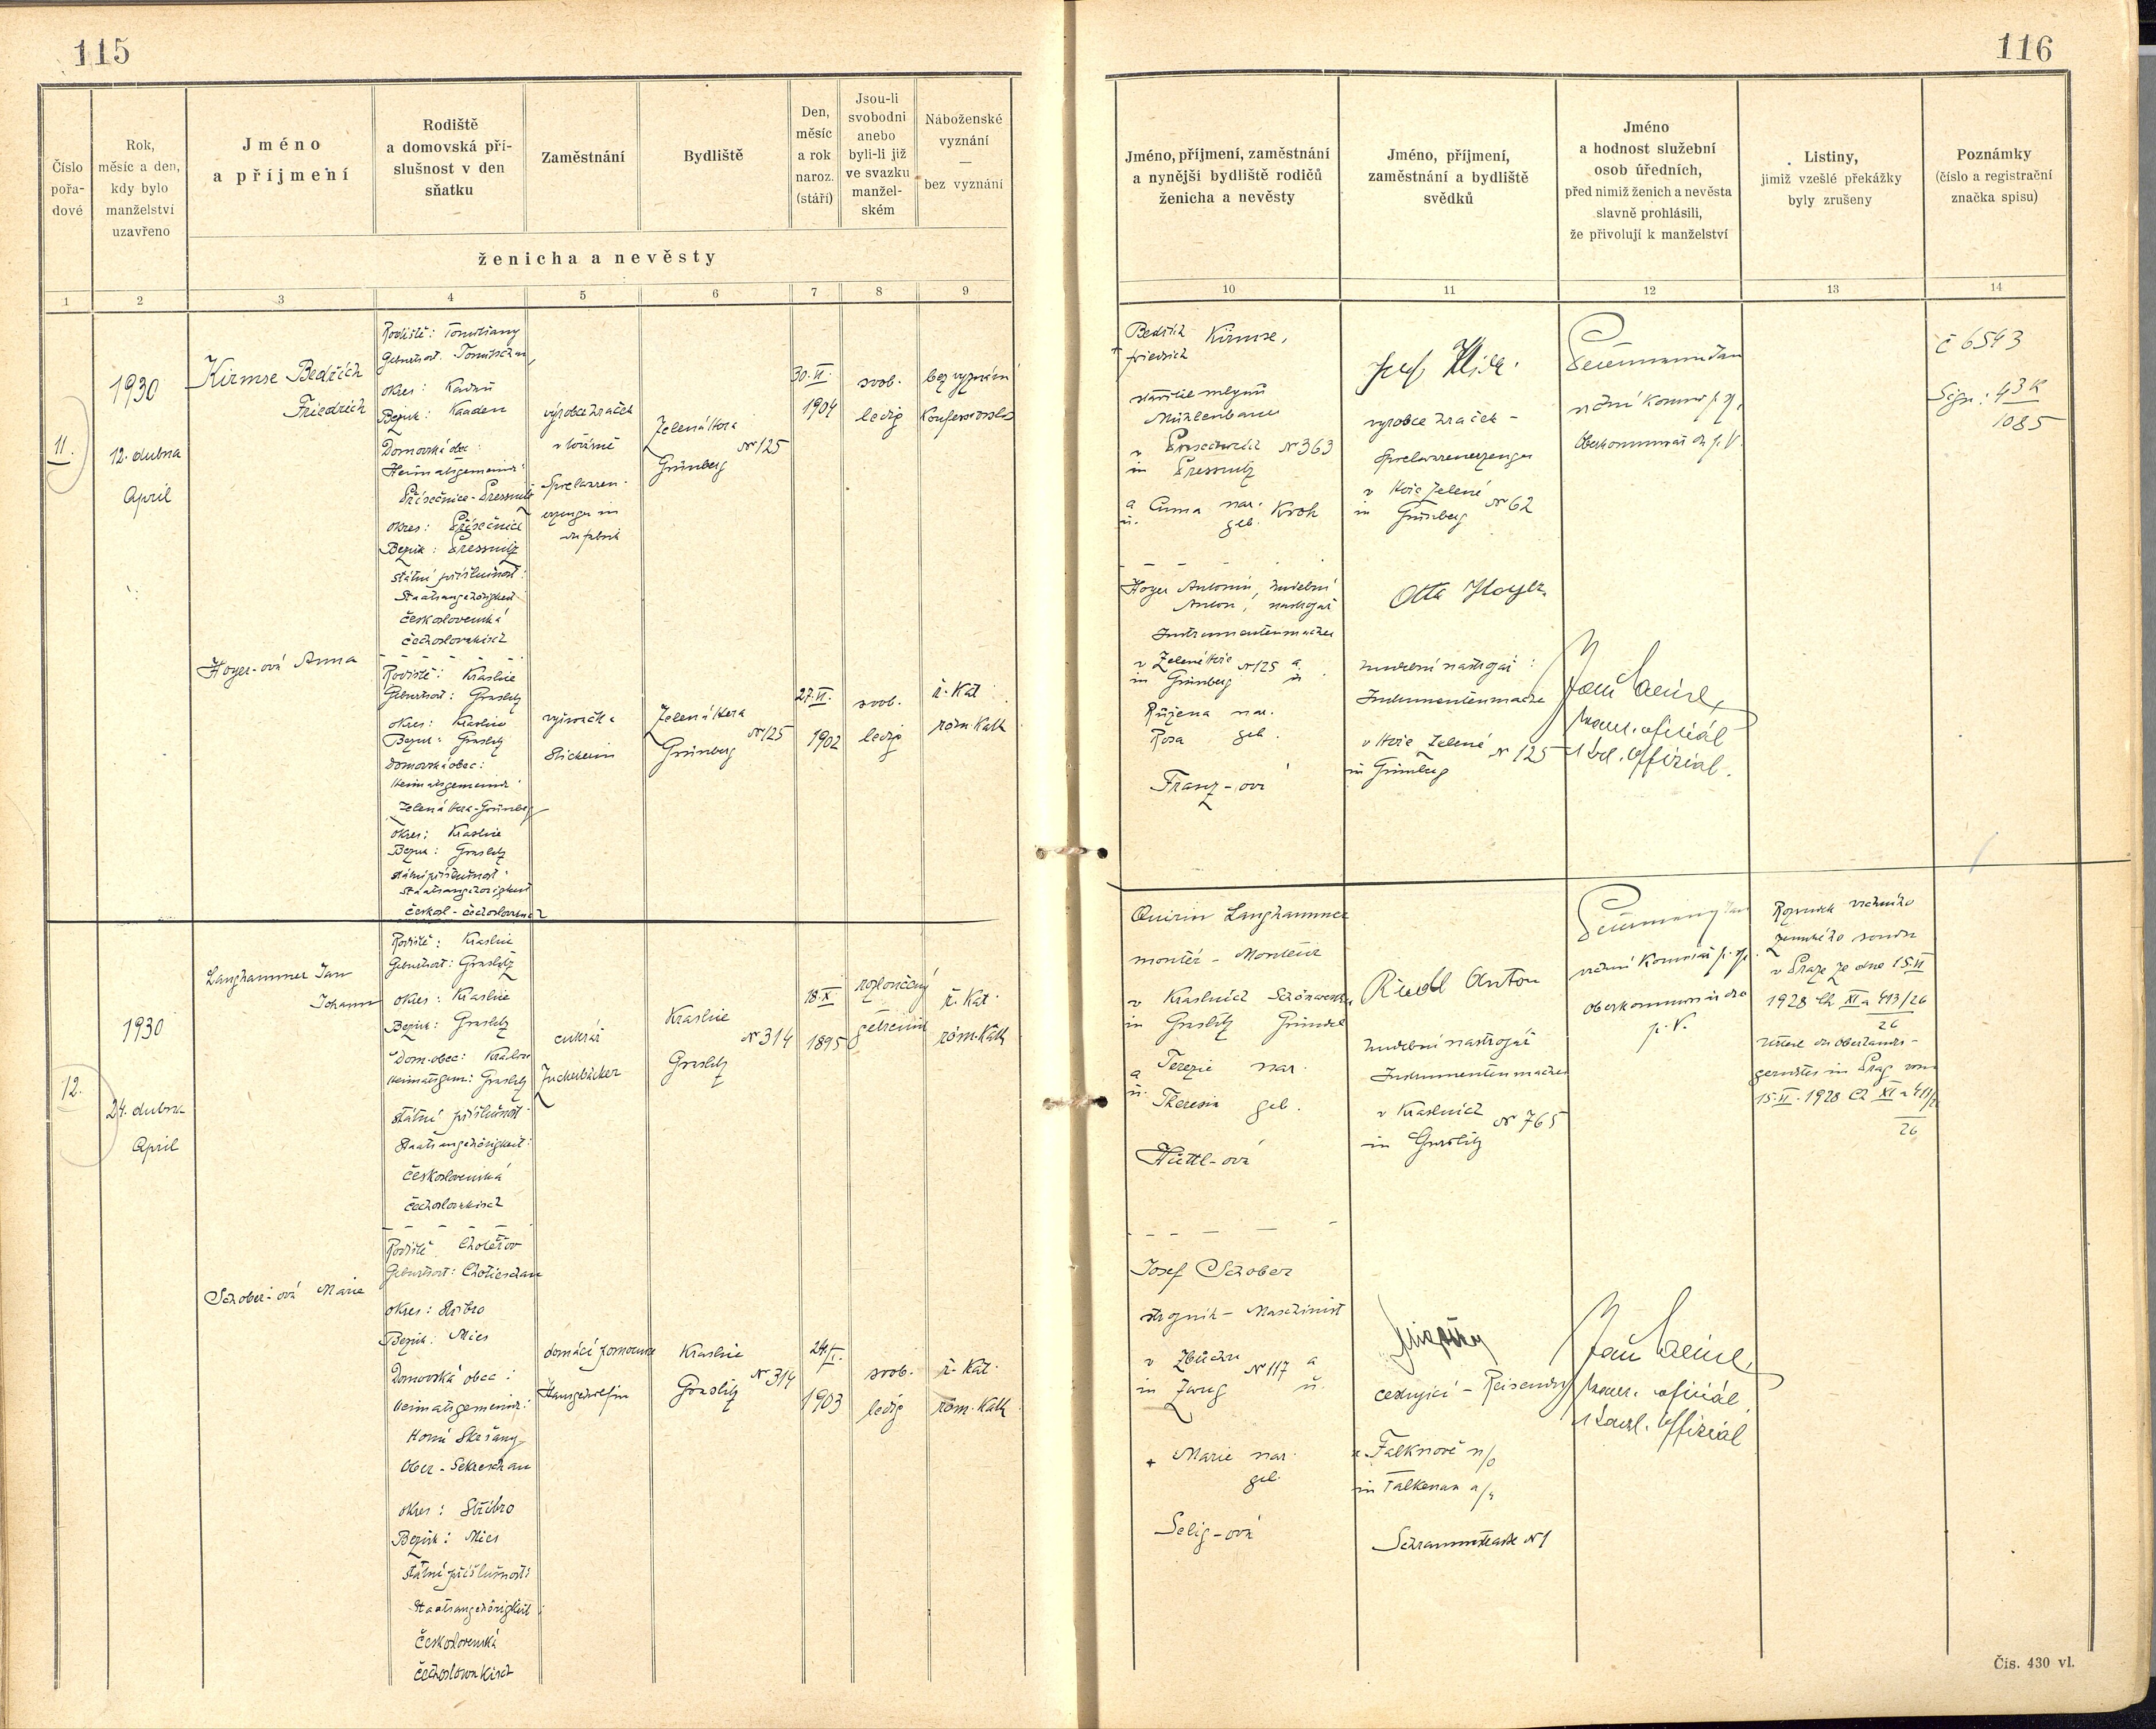 115
Číslo
pořa-
dové
Rok,
měsíc a den,
kdy bylo
manželství
uzavřeno
Jméno
a příjmení
Rodiště
a domovská pří-
slušnost v den
sňatku
Zaměstnání
Bydliště
Den,
měsíc
a rok
naroz.
(stáří)
Jsou-li
svobodni
anebo
byli-li již
ve svazku
manžel-
ském
Náboženské
vyznání
—
bez vyznání
ženicha a nevěsty
1 2 3 4 5 6 7 8 9
11.
1930
12. dubna
April
Kirmse Bedřich
Friedrich
Rodiště:
Geburtsort:
okres: Kadaň
Bezirk: Kaaden
Domovská obec:
Heimatsgemeinde:
Přísečnice - Pressnitz
okres: Přísečnice
Bezirk: Pressnitz
státní příslušnost:
Staatsangehörigkeit:
československá
čechoslovakisch
výrobce hraček
v továrně
Spielwaren-
erzeuger in
der Fabrik
Zelená Hora
N° 125
Grünberg
30. VI.
1904
svob.
ledig
bez vyznání
Konfessionslos
Hoyer-ová Anna
Rodiště: Kraslice
Geburtsort: Graslitz
okres: Kraslice
Bezirk: Graslitz
Domovská obec:
Heimatsgemeinde:
Zelená Hora - Grünberg
okres: Kraslice
Bezirk: Graslitz
státní příslušnost:
Staatsangehörigkeit
českosl - čechoslovakisch
vyšívačka
Stickerin
Zelená Hora
N° 125
Grünberg
27. VI.
1902
svob.
ledig
ř. Kat.
röm. Kath
12.
1930
24. dubna
April
Langhammer Jan
Johann
Rodiště: Kraslice
Geburtsort: Graslitz
okres: Kraslice
Bezirk: Graslitz
Dom. obec: Kraslice
Heimatsgem: Graslitz
státní příslušnost
Staatsangehörigkeit:
československá
čechoslovakisch
cukrář
Zuckerbäcker
Kraslice
N° 314
Graslitz
18. X.
1895
rozloučený
getrennt
ř. Kat.
röm. Kath
Schober-ová Marie
Rodiště: Chotěšov
Geburtsort: Chotieschau
okres: Stříbro
Bezirk: Mies
Domovská obec:
Heimatsgemeinde:
Horní Sekřany
Ober-Sekreschan
okres: Stříbro
Bezirk: Mies
státní příslušnost:
Staatsangehörigkeit:
československá
čechoslovakisch
domácí pomocnice
Hausgehilfin
Kraslice
N° 314
Graslitz
24. I.
1903
svob.
ledig
ř. Kat.
röm. Kath
116
Jméno, příjmení, zaměstnání
a nynější bydliště rodičů
ženicha a nevěsty
Jméno, příjmení,
zaměstnání a bydliště
svědků
Jméno
a hodnost služební
osob úředních,
před nimiž ženich a nevěsta
slavně prohlásili,
že přivolují k manželství
Listiny,
jimiž vzešlé překážky
byly zrušeny
Poznámky
(číslo a registrační
značka spisu)
10 11 12 13 14
Bedřich Kirmse,
Friedrich
stavitel mlýnů
Mühlenbauer
v N° 363
in Pressnitz
a Anna nar. Kroh
u. geb.
Josef
výrobce hraček -
Spielwarenerzeuger
v Hoře Zelené N° 62
in Grünberg
vrchní
Oberkommissär d. p. V.
č 6543
Sign: 43 K
1085
Hoyer Antonín, hudební
Anton, nástrojař
Instrumentenmacher
v Zelené Hoře N° 125 a
in Grünberg u.
Růžena nar.
Rosa geb.
Franz-ová
Otto Hoyer
hudební nástrojař:
Instrumentenmacher
v Hoře Zelené N° 125
in Grünberg
kanc. oficiál
Kzl. Offizial.
Quirin Langhammer
montér - Monteur
v Kraslicích
in Graslitz
a Terezie nar.
u. Theresia geb.
Hüttl-ová
Riedl Anton
hudební nástrojář
Instrumentenmacher
v Kraslicích N° 765
in Graslitz
vrchní komisař p. sp.
Oberkommissär der
p. V.
Rozsudek vrchního
zemského soudu
v Praze ze dne 15. VI
1928 Čj. XI a 413/26
26
Urteil des Oberlandes-
gerichtes in Prag vom
15. VI. 1928
26
Josef Schober
strojník - Maschinist
v Zbůchu N° 117 a
in Zwug u
+ Marie nar.
geb.
Selig-ová
cestující - Reisender
v Falknově n/O
in Falkenau a/E
Schrammstrasse N° 1
kanc. oficiál
Kanzl. Offizial
Čís. 430 vl.